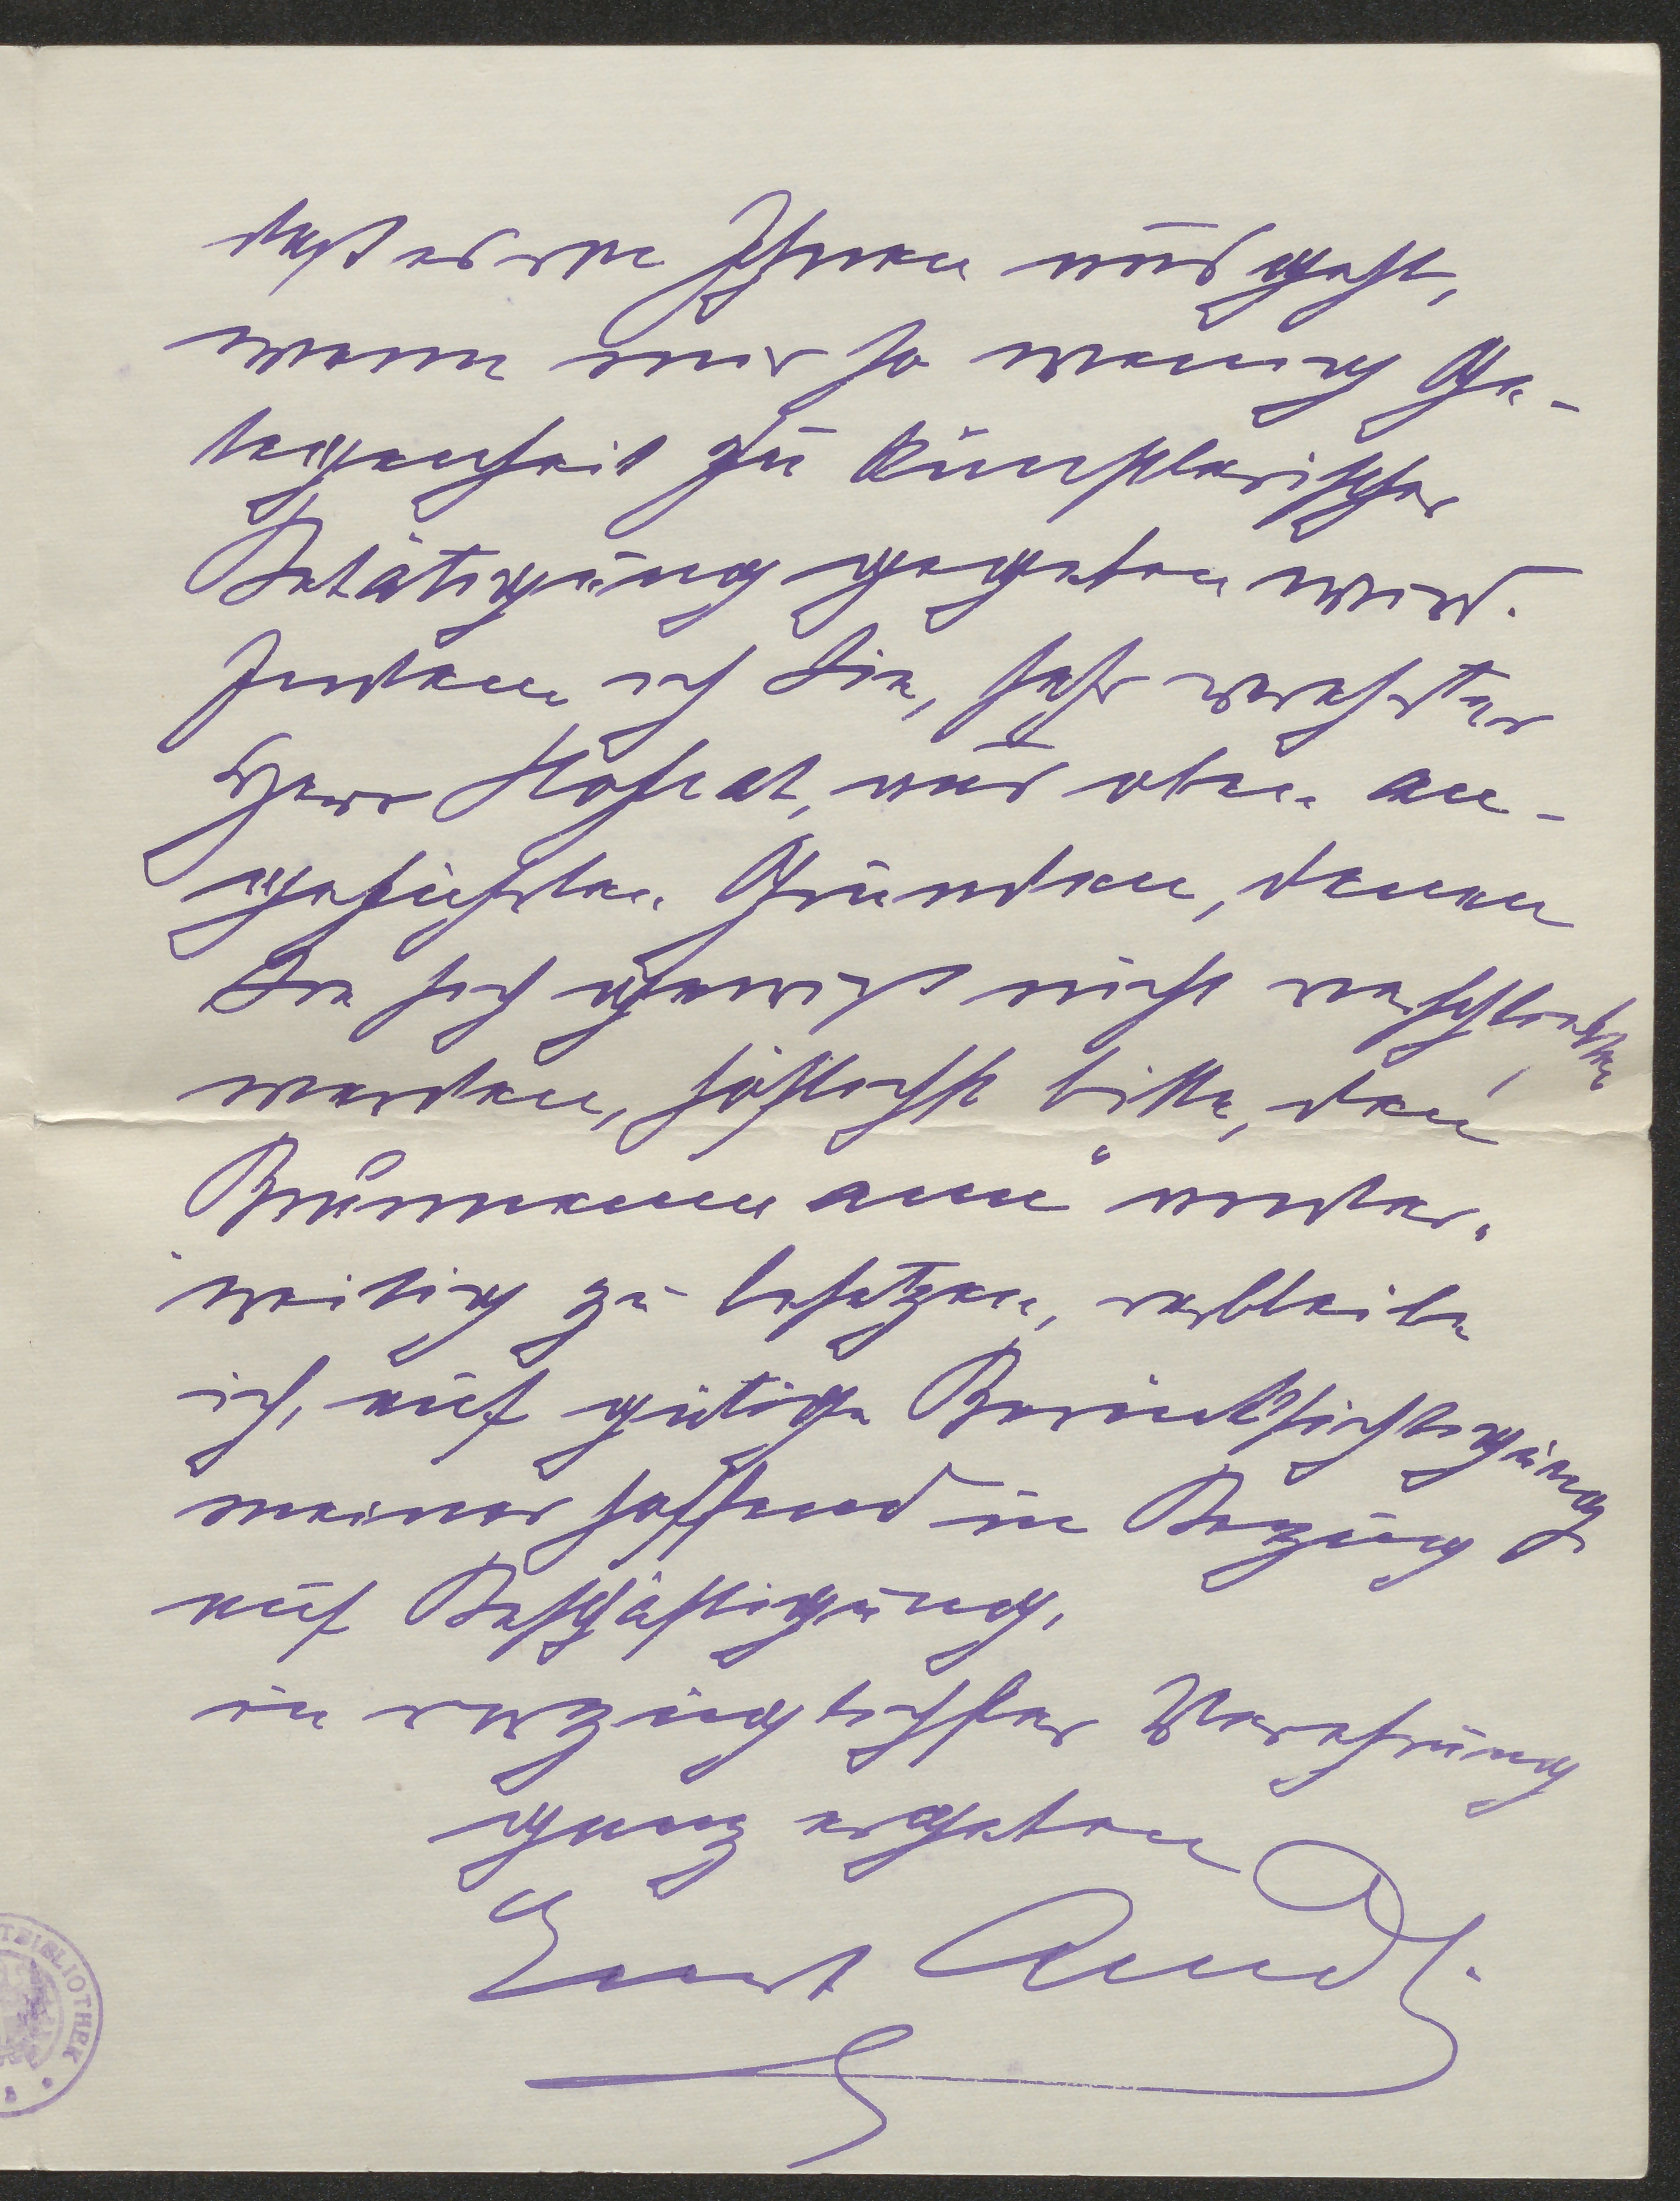 daß es von Ihnen ausgeht,
wenn mir so wenig Ge-
legenheit zu künstlerischer
Betätigung gegeben wird.
Indem ich Sie, sehr verehrter
Herr Hofrat, aus oben an-
geführten Gründen, denen
Sie sich gewiß nicht verschließen
werden, höflichst bitte, den
„Brünnemann" ander-
weitig zu besetzen, verbleibe
ich, auf gütige Berücksichtigung
meiner hoffend in Bezug
auf Beschäftigung,
in vorzüglichster Verehrung
ganz ergeben
Ernst Arndt.
TBIBLIOTHEK